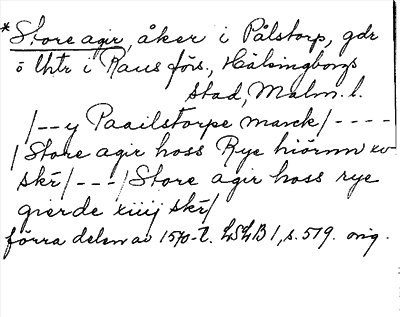 *Store agir, åker i Pålstorp, gdr
o Uhtr i Raus förs., Hälsingborgs
stad, Malm. l.
/-- y Paailstorpe marck/----
/Store agir hoss Rye hiörnn xv
skr/---/Store agir hoss rye
gierde xiiij skr/
förra delen av 1570-t. LSLB 1, s. 519. orig.